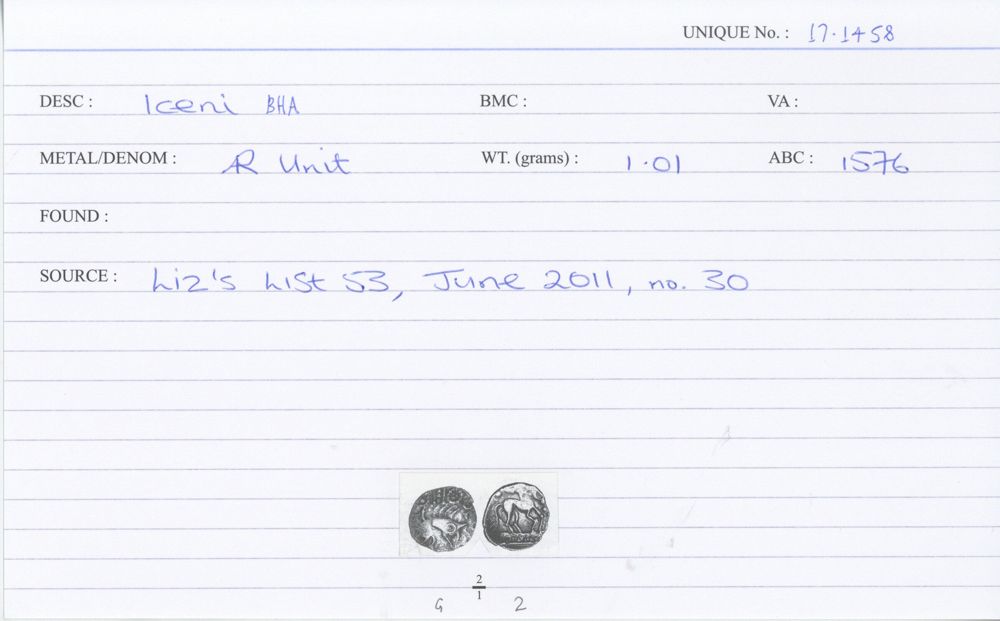 UNIQUE No. : 17.1458
DESC : Iceni BHA BMC : VA :
METAL/DENOM : AR Unit WT. (grams) : 1.01 ABC : 1576
FOUND :
SOURCE : Liz's List 53, June 2011, no. 30
2
1
2